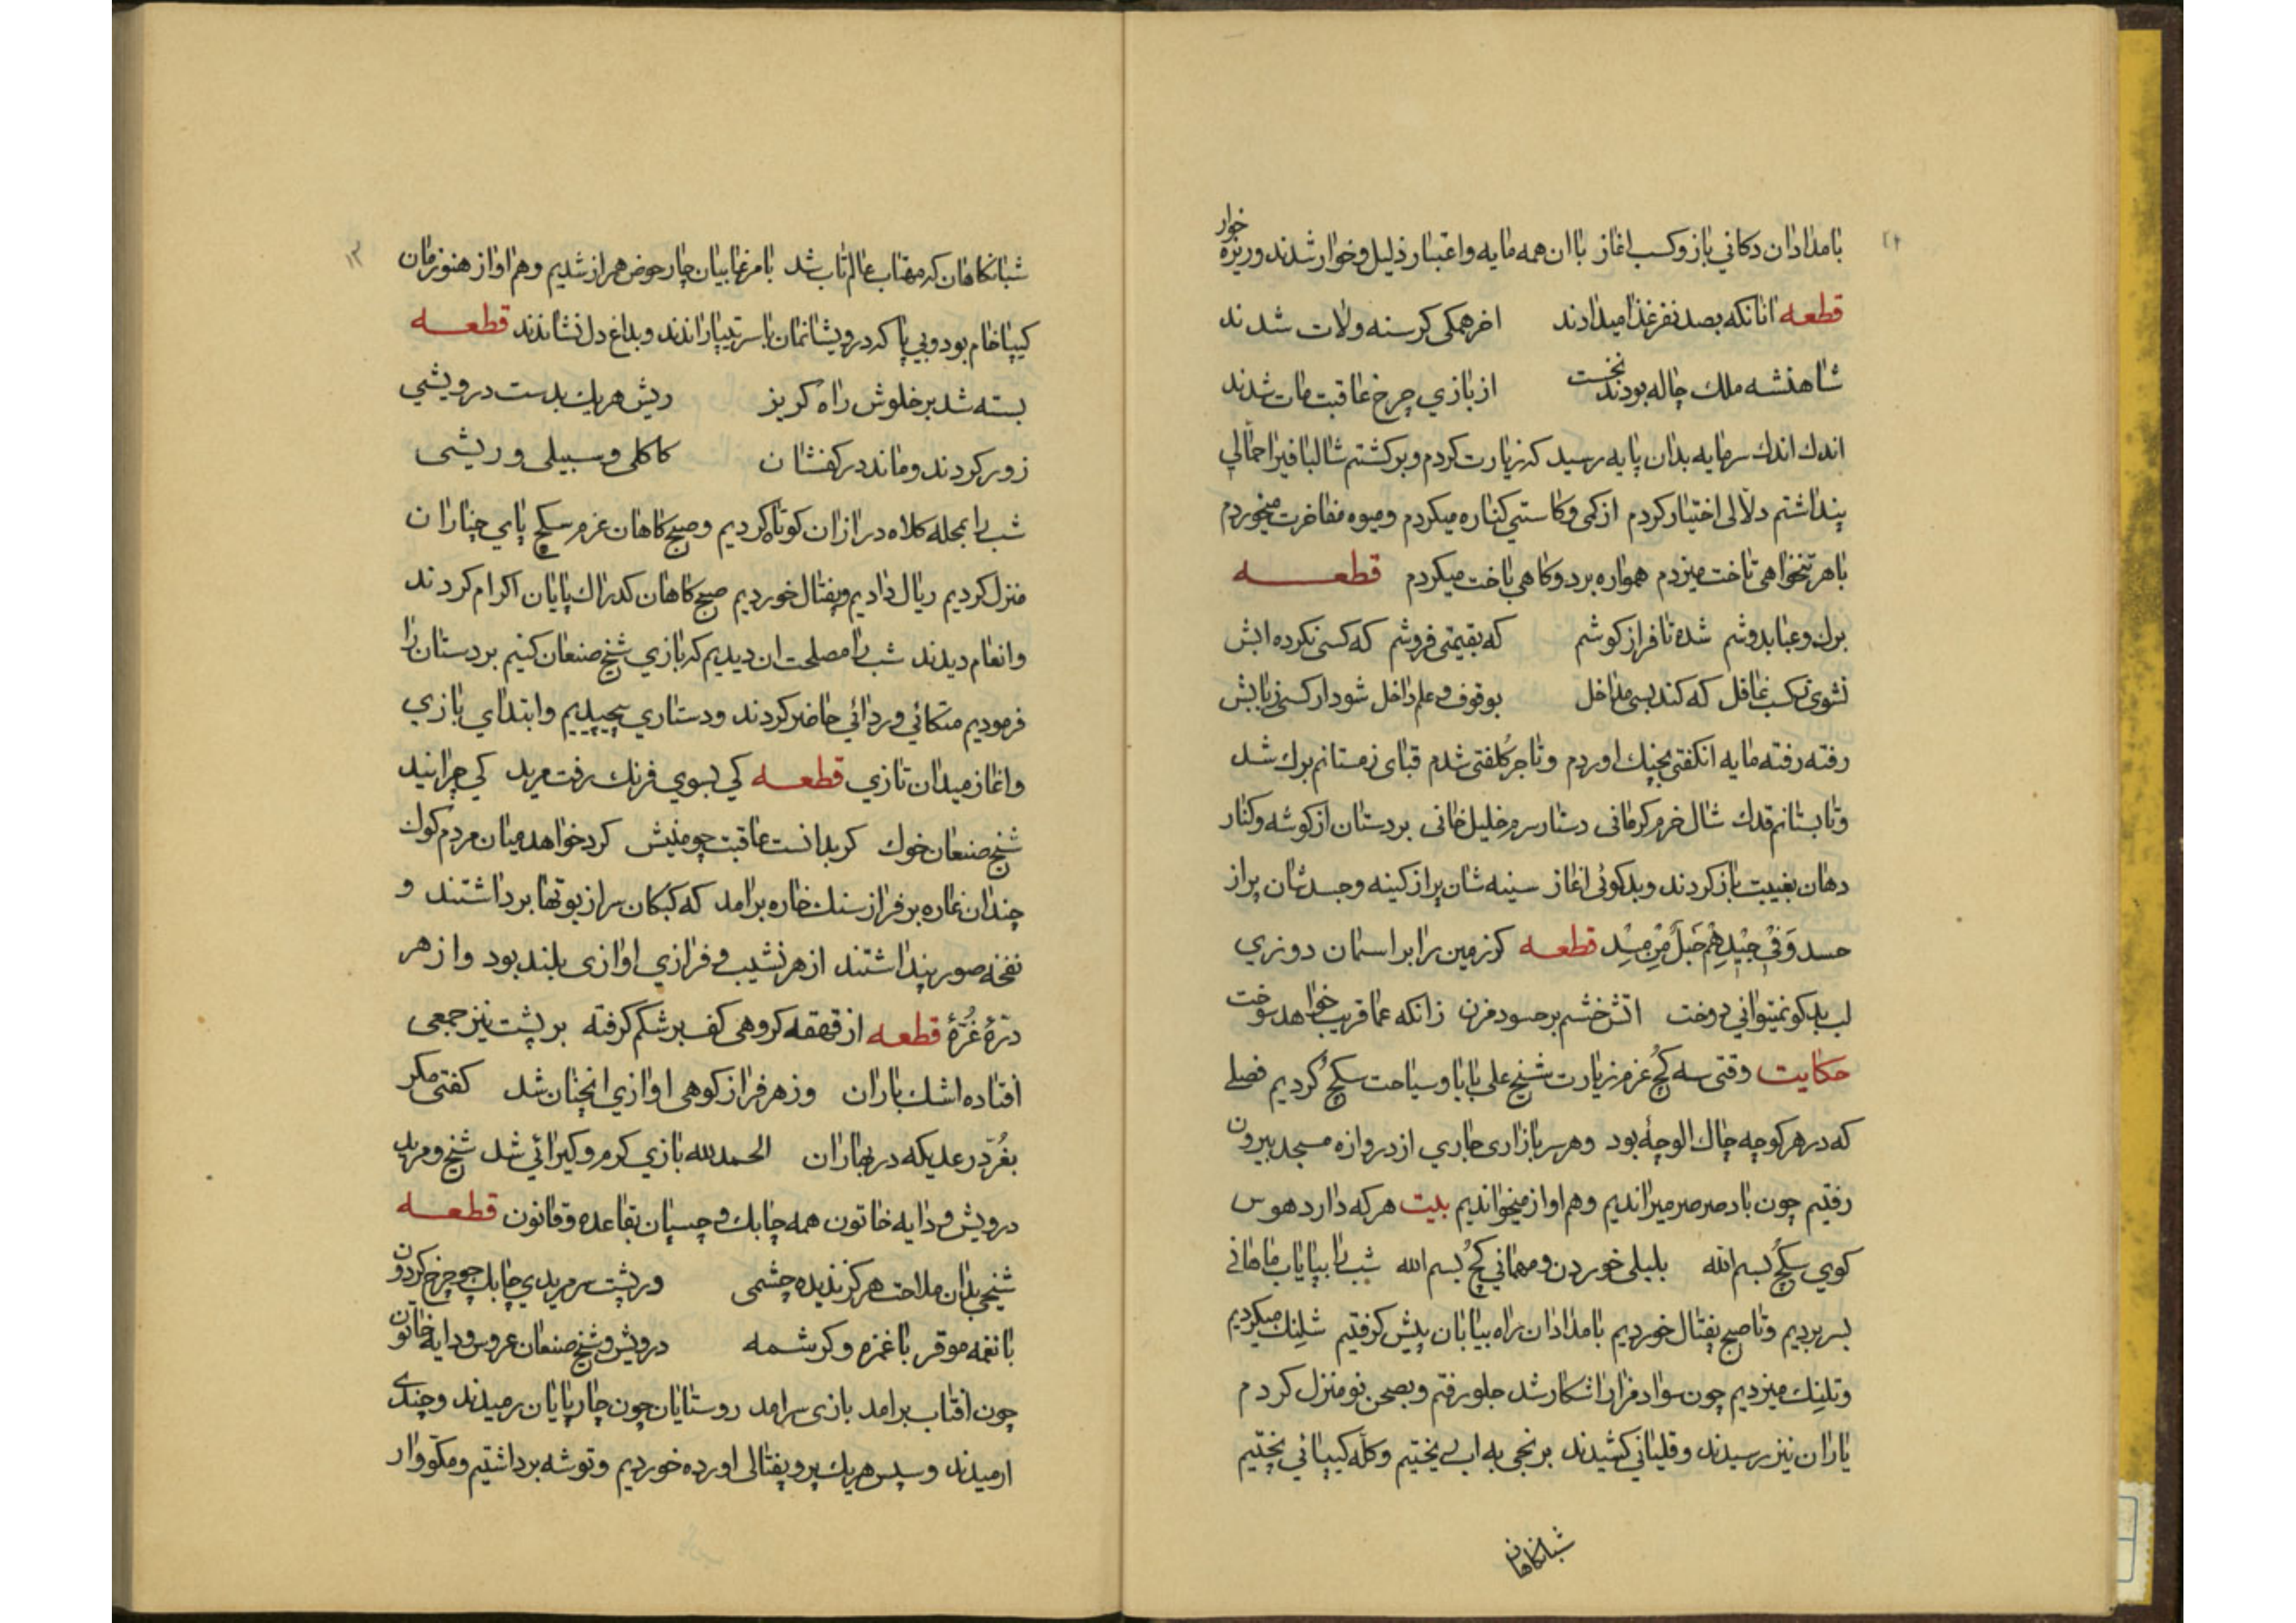 بامدادان دکانی باز و کسب اغاز با ان همه مایه و اعتبار ذلیل و خوار شدند و ریزه خوار
قطعه انانکه بصد نفر غذا میدادند اخر همکی کرسنه ولات شدند
شاهنشه ملك چاله بودند نخست از بازي چرخ عاقبت مات شدند
اندك اندك سرمایه بدان پایه رسید که زیارت کردم و برکشتم شالبافیرا حمالي
پنداشتم دلالی اختیار کردم از کمی و کاستي کناره میکردم و میوه مفاخرت میخوردم
باهر تنخواهی تاخت میزدم همواره برد و کاهی باخت میکردم قطعه
برك و عبا بدوشم شده تا فراز کوشم که بقیمتی فروشم که کسی نکرده ابش
نشوی ز کسب غافل که کند بسی مداخل بوقوف و علم داخل شود ار کسی ز بابش
رفته رفته مایه انکفتی بچنك اوردم و تاجر کلفتی شدم قبای زمستانم برك شد
و تابستانم قدك شال خرم کرمانی دستار سرم خلیل خانی بردستان از کوشه و کنار
دهان بغیبت باز کردند و بدکوئی اغاز سینه شان پر از کینه و جسدشان پر از
حسد وَفي جیْدِهِمْ حَبلٌ مِّن مسَد قطعه کر زمین را بر اسمان دوزي
لب بدکو نمیتواني دوخت اتش خشم بر حسود مزن زانکه عما قریب خواهد سوخت
حکایت وقتی سه کچ عزم زیارت شیخ علی بابا و سیاحت سکچ کردیم فصلی
که در هر کوچه چاك الوچهٔ بود و هر سر بازاری جاري از دروازه مسجد بیرون
رفتیم چون باد صرصر میراندیم و هم اواز میخواندیم بیت هرکه دارد هوس
کوي سکچ بسم الله بلبلی خوردن و مهماني کچ بسم الله شب را بپایاب ماهانی
بسر بردیم و تا صبح پفتال خوردیم بامدادان راه بیابان پیش کرفتیم شلنك میکردیم
و تلنك میزدیم چون سواد مزار اشکار شد جلو رفتم و بصحن نو منزل کردم
یاران نیز رسیدند و قلیانی کشیدند برنجی به ابی پختیم و کله کیپائی پختیم
شبانکاهان
شبانکاهان که مهتاب عالم تاب شد با مرغابیان چار حوض همراز شدیم و هم اواز هنوزمان
کیپا خام بود و بی پا که درویشانمان با سر تیپا راندند و بداغ دل نشاندند قطعه
بسته شد بر خلوش راه کریز ریش هریك بدست درویشي
زور کردند و ماند در کفشان کاکلی و سبیلی و ریشی
شب را بمحله کلاه درازان کوتاه کردیم و صبح کاهان عزم سکچ پاي چناران
منزل کردیم ریال دادیم و پفتال خوردیم صبح کاهان کدراك پایان اکرام کردند
و انعام دیدند شب را مصلحت ان دیدیم که بازي شیخ صنعان کنیم بردستان را
فرمودیم متکائی و ردائي حاضر کردند و دستاري پیچیدیم و ابتدای بازي
و اغاز میدان تازي قطعه کي بسوي فرنك رفت مرید کي چرانید
شیخ صنعان خوك کر بدانست عاقبت چو منیش کرد خواهد میان مردم کوك
چندان نماره بر فراز سنك خاره برامد که کبکان سر از بوتها برداشتند و
نفخه صور پنداشتند از هر نشیب و فرازي اوازی بلند بود و از هر
درّهٔ غُرّهٔ قطعه از قهقهه کروهی کف بر شکم کرفته بر پشت نیز جمعی
افتاده اشك باران وز هر فراز کوهی اوازي انچنان شد کفتی مکر
بغُرّد رعدیکه در بهاران الحمدلله بازي کرم و کیرائي شد شیخ و مرید
درویش و دایه خاتون همه چابك و چسپان بقاعده و قانون قطعه
شیخي بدان ملاحت هرکز ندیده چشمی ور پشت سر مریدي چابك چو چرخ کردون
با نغمه موقر با غمزه و کرشمه درویش و شیخ صنعان عروس و دایه خاتون
چون افتاب برامد بازی سرامد روستایان چون چارپایان رمیدند و چندی
ارمیدند و سپس هریك پرو پفتالی اورده خوردیم و توشه برداشتیم و مکووار